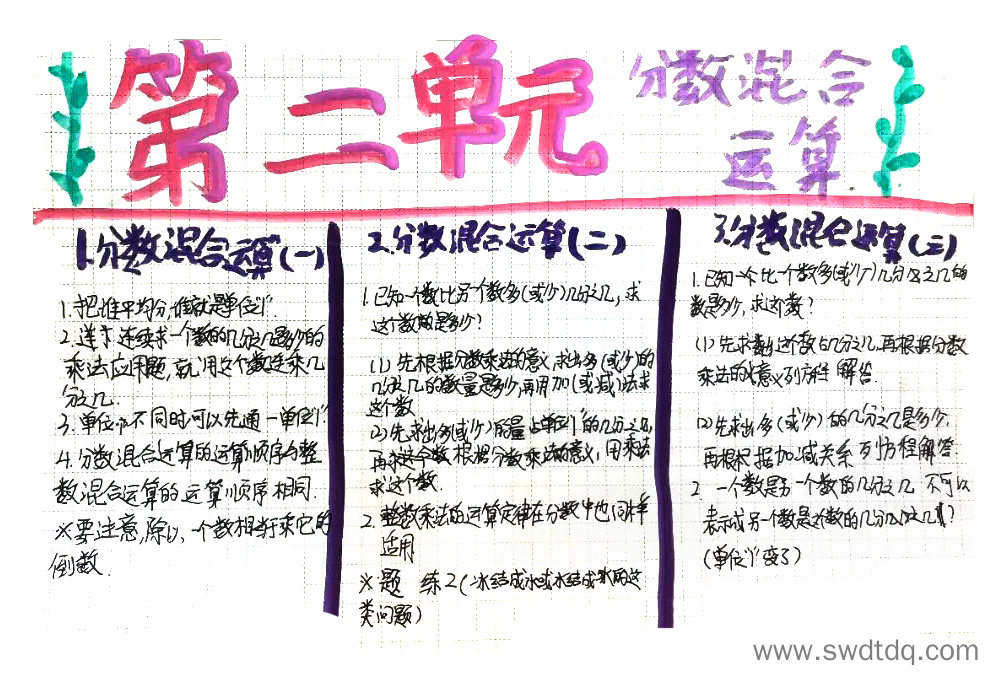 第二单元
分数混合
运算
1.分数混合运算(一)
1.把谁平均分,谁就是单位“1”
2.连续求一个数的几分之几是多少的
乘法应用题,就用这个数连乘几
分之几.
3.单位“1”不同时可以先通一单位“1”
4.分数混合运算的运算顺序与整
数混合运算的运算顺序相同.
※要注意,除以一个数相当于乘它的
倒数.
2.分数混合运算(二)
1.已知一个数比另一个数多(或少)几分之几,求
这个数是多少?
(1)先根据分数乘法的意义,求出多(或少)的
几分之几的数量是多少,再用加(或减)法求
这个数.
(2)先求出多(或少)的量占单位“1”的几分之几,
再求这个数,根据分数乘法的意义,用乘法
求这个数.
2.整数乘法的运算定律在分数中也同样
适用
※题 练2(冰结成水或水结成冰的这
类问题)
3.分数混合运算(三)
1.已知一个比一个数多(或少)几分之几的
数是多少,求这个数?
(1)先求出这个数的几分之几,再根据分数
乘法的意义列方程解答.
(2)先求出多(或少)的几分之几是多少,
再根据加减关系列方程解答.
2.一个数是另一个数的几分之几,不可以
表示成另一个数是这个数的几分之几!?
(单位“1”变了)
www.swdtdq.com